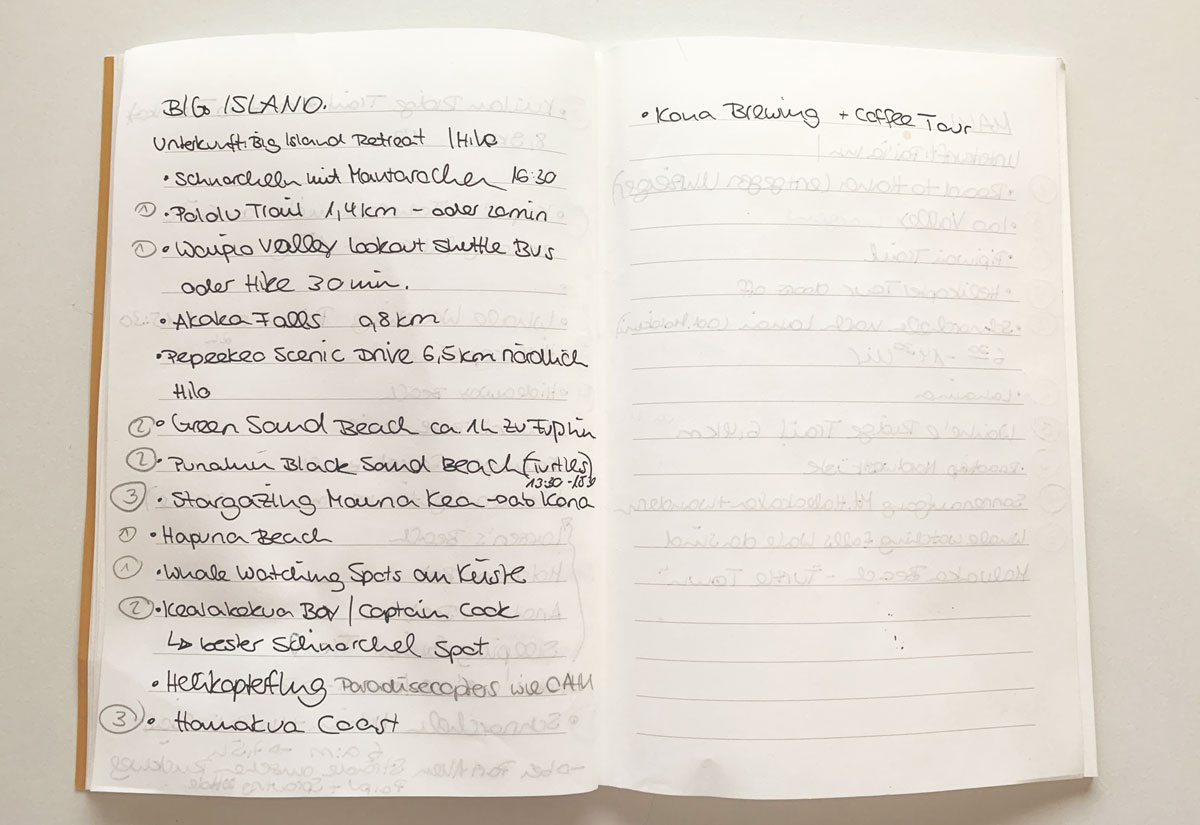 BIG ISLAND.
Unterkunft: Big Island Retreat | Hilo
• Schnorcheln mit Mantarochen 16:30
① • Pololu Trail 1,4 km - oder 20min
① • Waipio Valley lookout Shuttle Bus
oder Hike 30 min.
• Akaka Falls 0,8 km
• Pepeekeo Scenic Drive 6,5km nördlich
Hilo
② • Green Sand Beach ca 1h zu Fuß hin
② • Punaluu Black Sand Beach (Turtles)
③ • Stargazing Mauna Kea → ab Kona
① • Hapuna Beach
① • Whale Watching Spots an Küste
② • Kealakekua Bay / Captain Cook
↳ bester Schnorchel Spot
• Helikopterflug Paradisecopters wie OAHU
③ • Hamakua Coast
• Kona Brewing + Coffee Tour